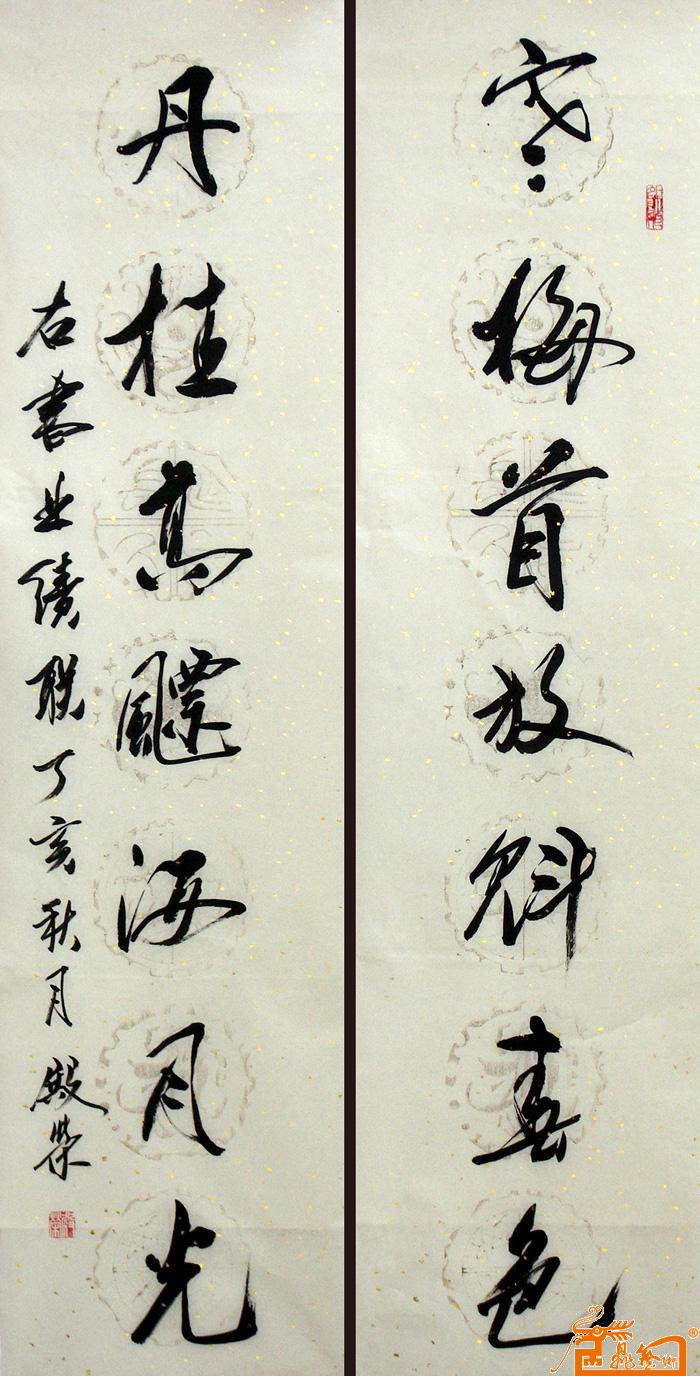 寒梅首放魁春色
丹桂高飘海月光
右书业绩联丁亥秋月殿荣